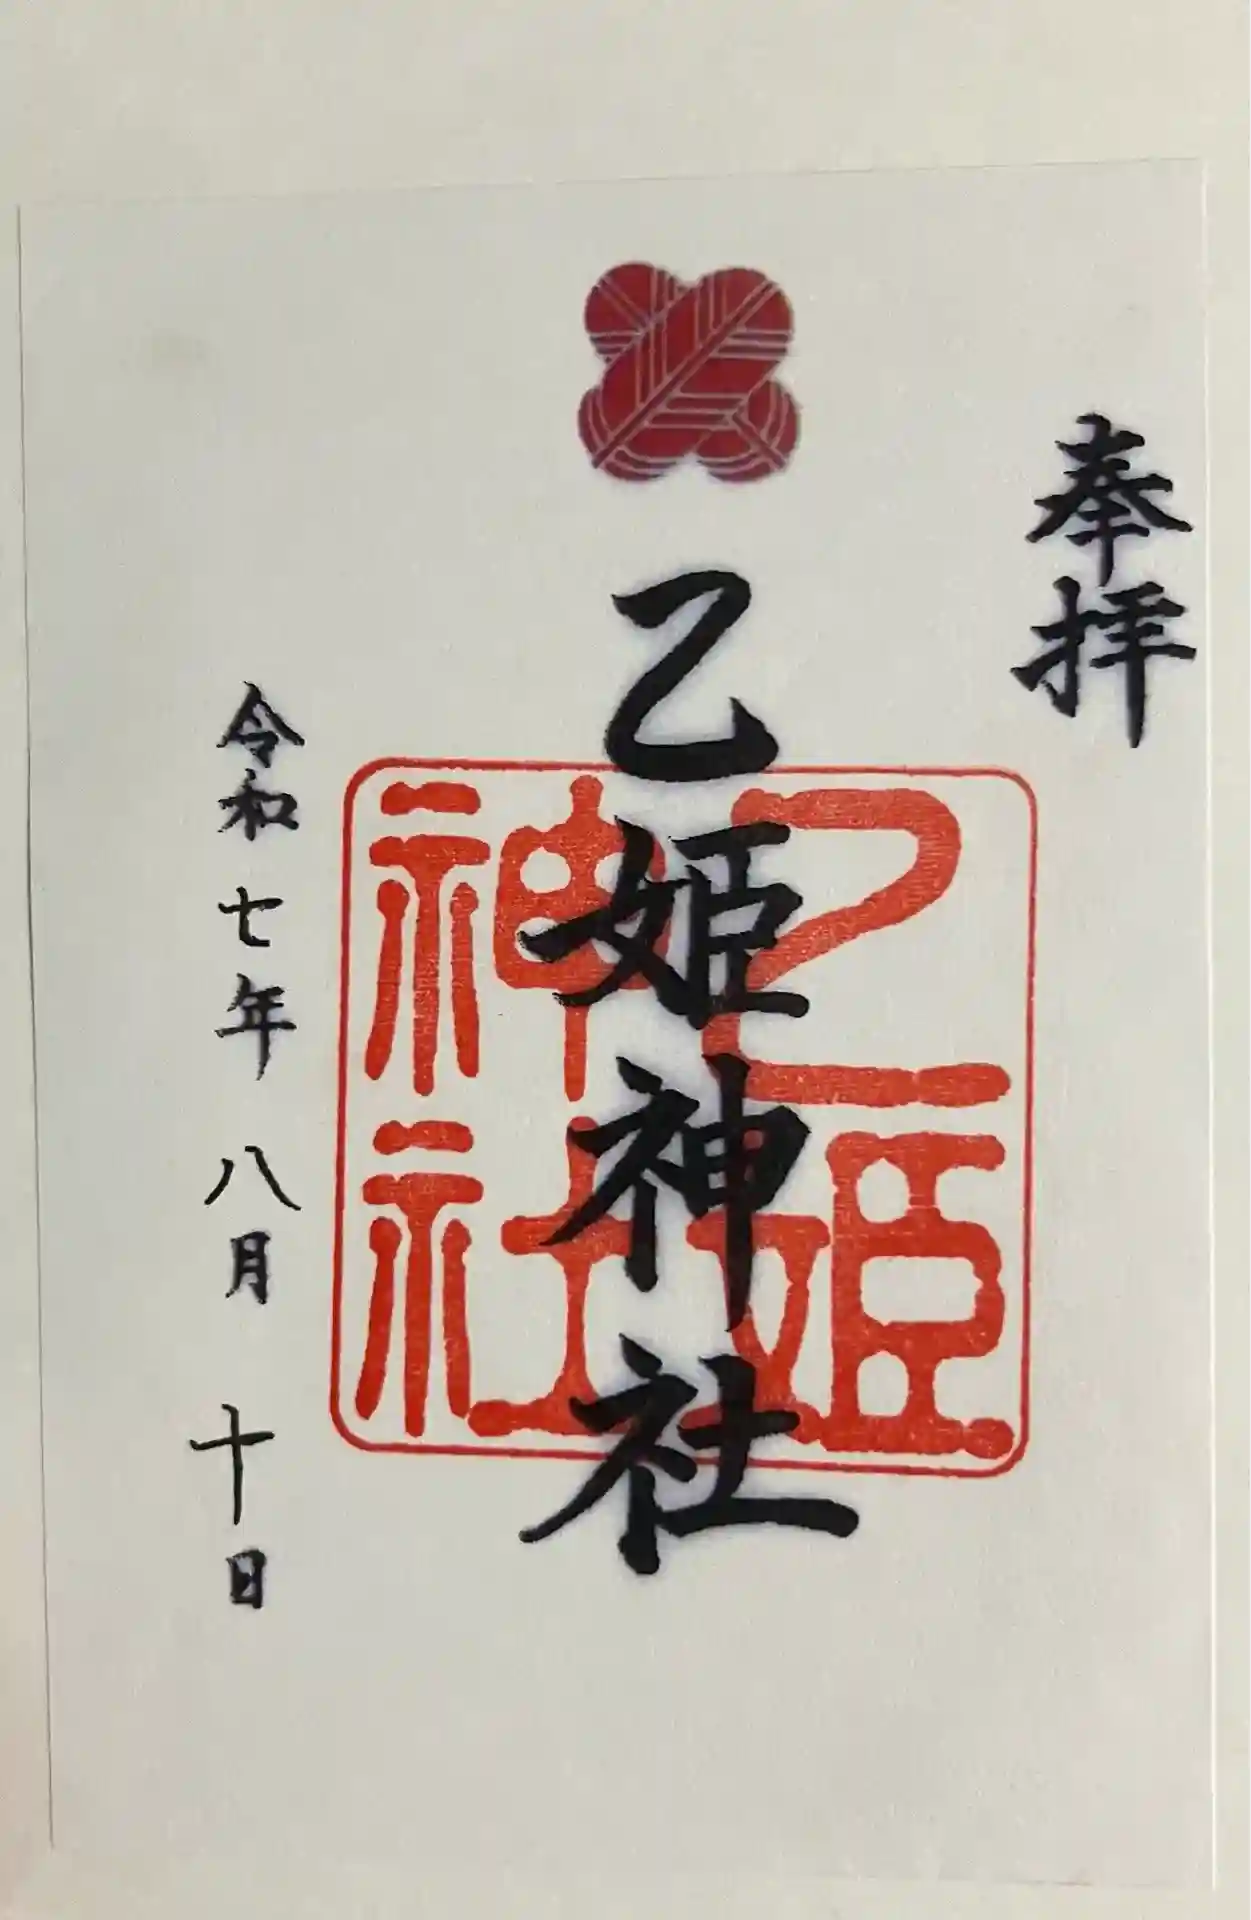 奉拝
乙姫神社
乙姫
神社
令和七年八月十日